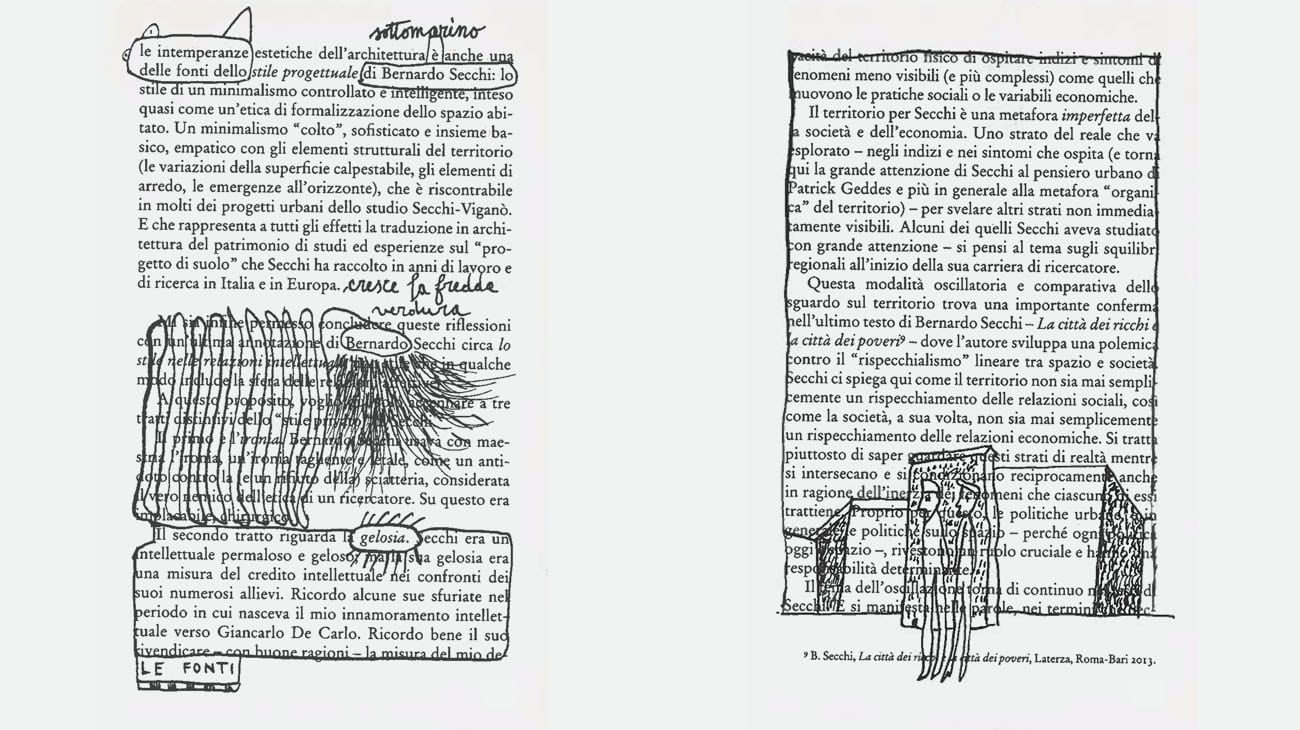 sottomprino
le intemperanze estetiche dell'architettura è anche una
delle fonti dello stile progettuale di Bernardo Secchi: lo
stile di un minimalismo controllato e intelligente, inteso
quasi come un'etica di formalizzazione dello spazio abi-
tato. Un minimalismo “colto”, sofisticato e insieme ba-
sico, empatico con gli elementi strutturali del territorio
(le variazioni della superficie calpestabile, gli elementi di
arredo, le emergenze all'orizzonte), che è riscontrabile
in molti dei progetti urbani dello studio Secchi-Viganò.
E che rappresenta a tutti gli effetti la traduzione in archi-
tettura del patrimonio di studi ed esperienze sul “pro-
getto di suolo” che Secchi ha raccolto in anni di lavoro e
di ricerca in Italia e in Europa. cresce la fredda
verdura
Mi sia infine permesso concludere queste riflessioni
con un'ultima annotazione di Bernardo Secchi circa lo
stile nelle relazioni intellettuali che in qualche
modo include la sfera delle relazioni affettive.
A questo proposito, voglio accennare a tre
tratti distintivi dello “stile privato” di Secchi
Il primo è l'ironia. Bernardo Secchi usava con mae-
stria l'ironia, un'ironia tagliente e letale, come un anti-
doto contro la (e un rifiuto della) sciatteria, considerata
il vero nemico dell'etica di un ricercatore. Su questo era
implacabile, chirurgico.
Il secondo tratto riguarda la gelosia. Secchi era un
intellettuale permaloso e geloso; ma la sua gelosia era
una misura del credito intellettuale nei confronti dei
suoi numerosi allievi. Ricordo alcune sue sfuriate nel
periodo in cui nasceva il mio innamoramento intellet-
tuale verso Giancarlo De Carlo. Ricordo bene il suo
rivendicare – con buone ragioni – la misura del mio de-
LE FONTI
pacità del territorio fisico di ospitare indizi e sintomi di
fenomeni meno visibili (e più complessi) come quelli che
muovono le pratiche sociali o le variabili economiche.
Il territorio per Secchi è una metafora imperfetta del-
la società e dell'economia. Uno strato del reale che va
esplorato – negli indizi e nei sintomi che ospita (e torna
qui la grande attenzione di Secchi al pensiero urbano di
Patrick Geddes e più in generale alla metafora “organi-
ca” del territorio) – per svelare altri strati non immedia-
tamente visibili. Alcuni dei quelli Secchi aveva studiato
con grande attenzione – si pensi al tema sugli squilibri
regionali all'inizio della sua carriera di ricercatore.
Questa modalità oscillatoria e comparativa dello
sguardo sul territorio trova una importante conferma
nell'ultimo testo di Bernardo Secchi – La città dei ricchi e
la città dei poveri⁹ – dove l'autore sviluppa una polemica
contro il “rispecchialismo” lineare tra spazio e società.
Secchi ci spiega qui come il territorio non sia mai sempli-
cemente un rispecchiamento delle relazioni sociali, così
come la società, a sua volta, non sia mai semplicemente
un rispecchiamento delle relazioni economiche. Si tratta
piuttosto di saper guardare questi strati di realtà mentre
si intersecano e si condizionano reciprocamente anche
in ragione dell'inerzia dei fenomeni che ciascuno di essi
trattiene. Proprio per questo, le politiche urbane, in
generale le politiche sullo spazio – perché ogni politica
oggi è spazio –, rivestono un ruolo cruciale e hanno una
responsabilità determinante.
Il tema dell'oscillazione torna di continuo nei testi di
Secchi. E si manifesta nelle parole, nei termini che Sec-
⁹ B. Secchi, La città dei ricchi e la città dei poveri, Laterza, Roma-Bari 2013.